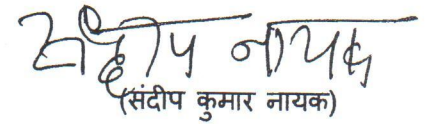 संदीप नायक
(संदीप कुमार नायक)